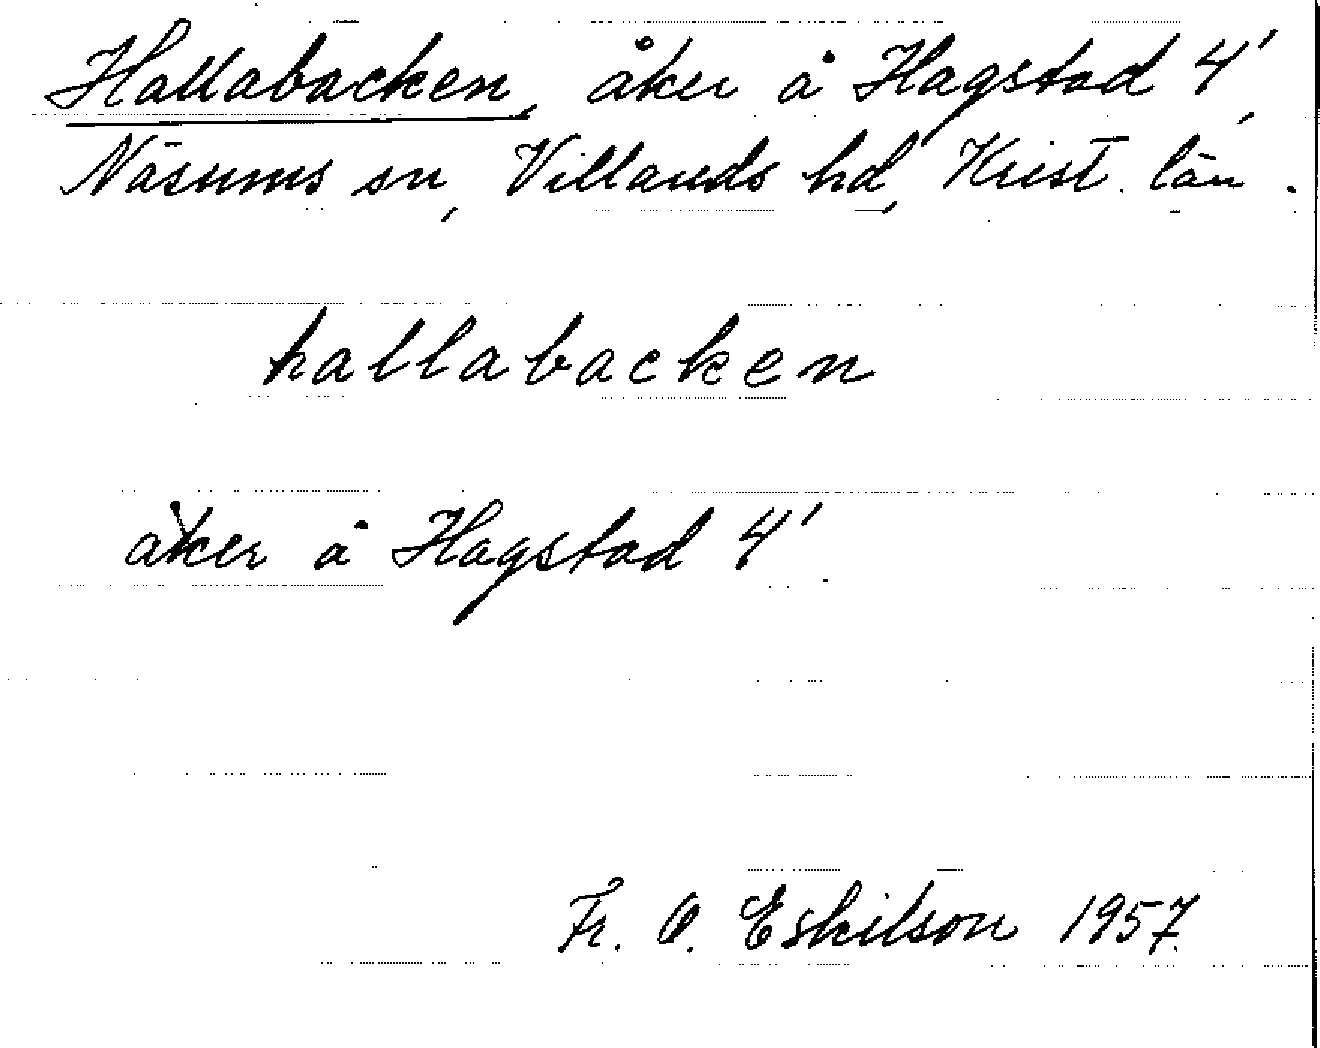 Hallabacken, åker å Hagstad 4',
Näsums sn, Villands hd, Krist. län.
hallabacken
åker å Hagstad 4'
Fr. O. Eskilson 1957.